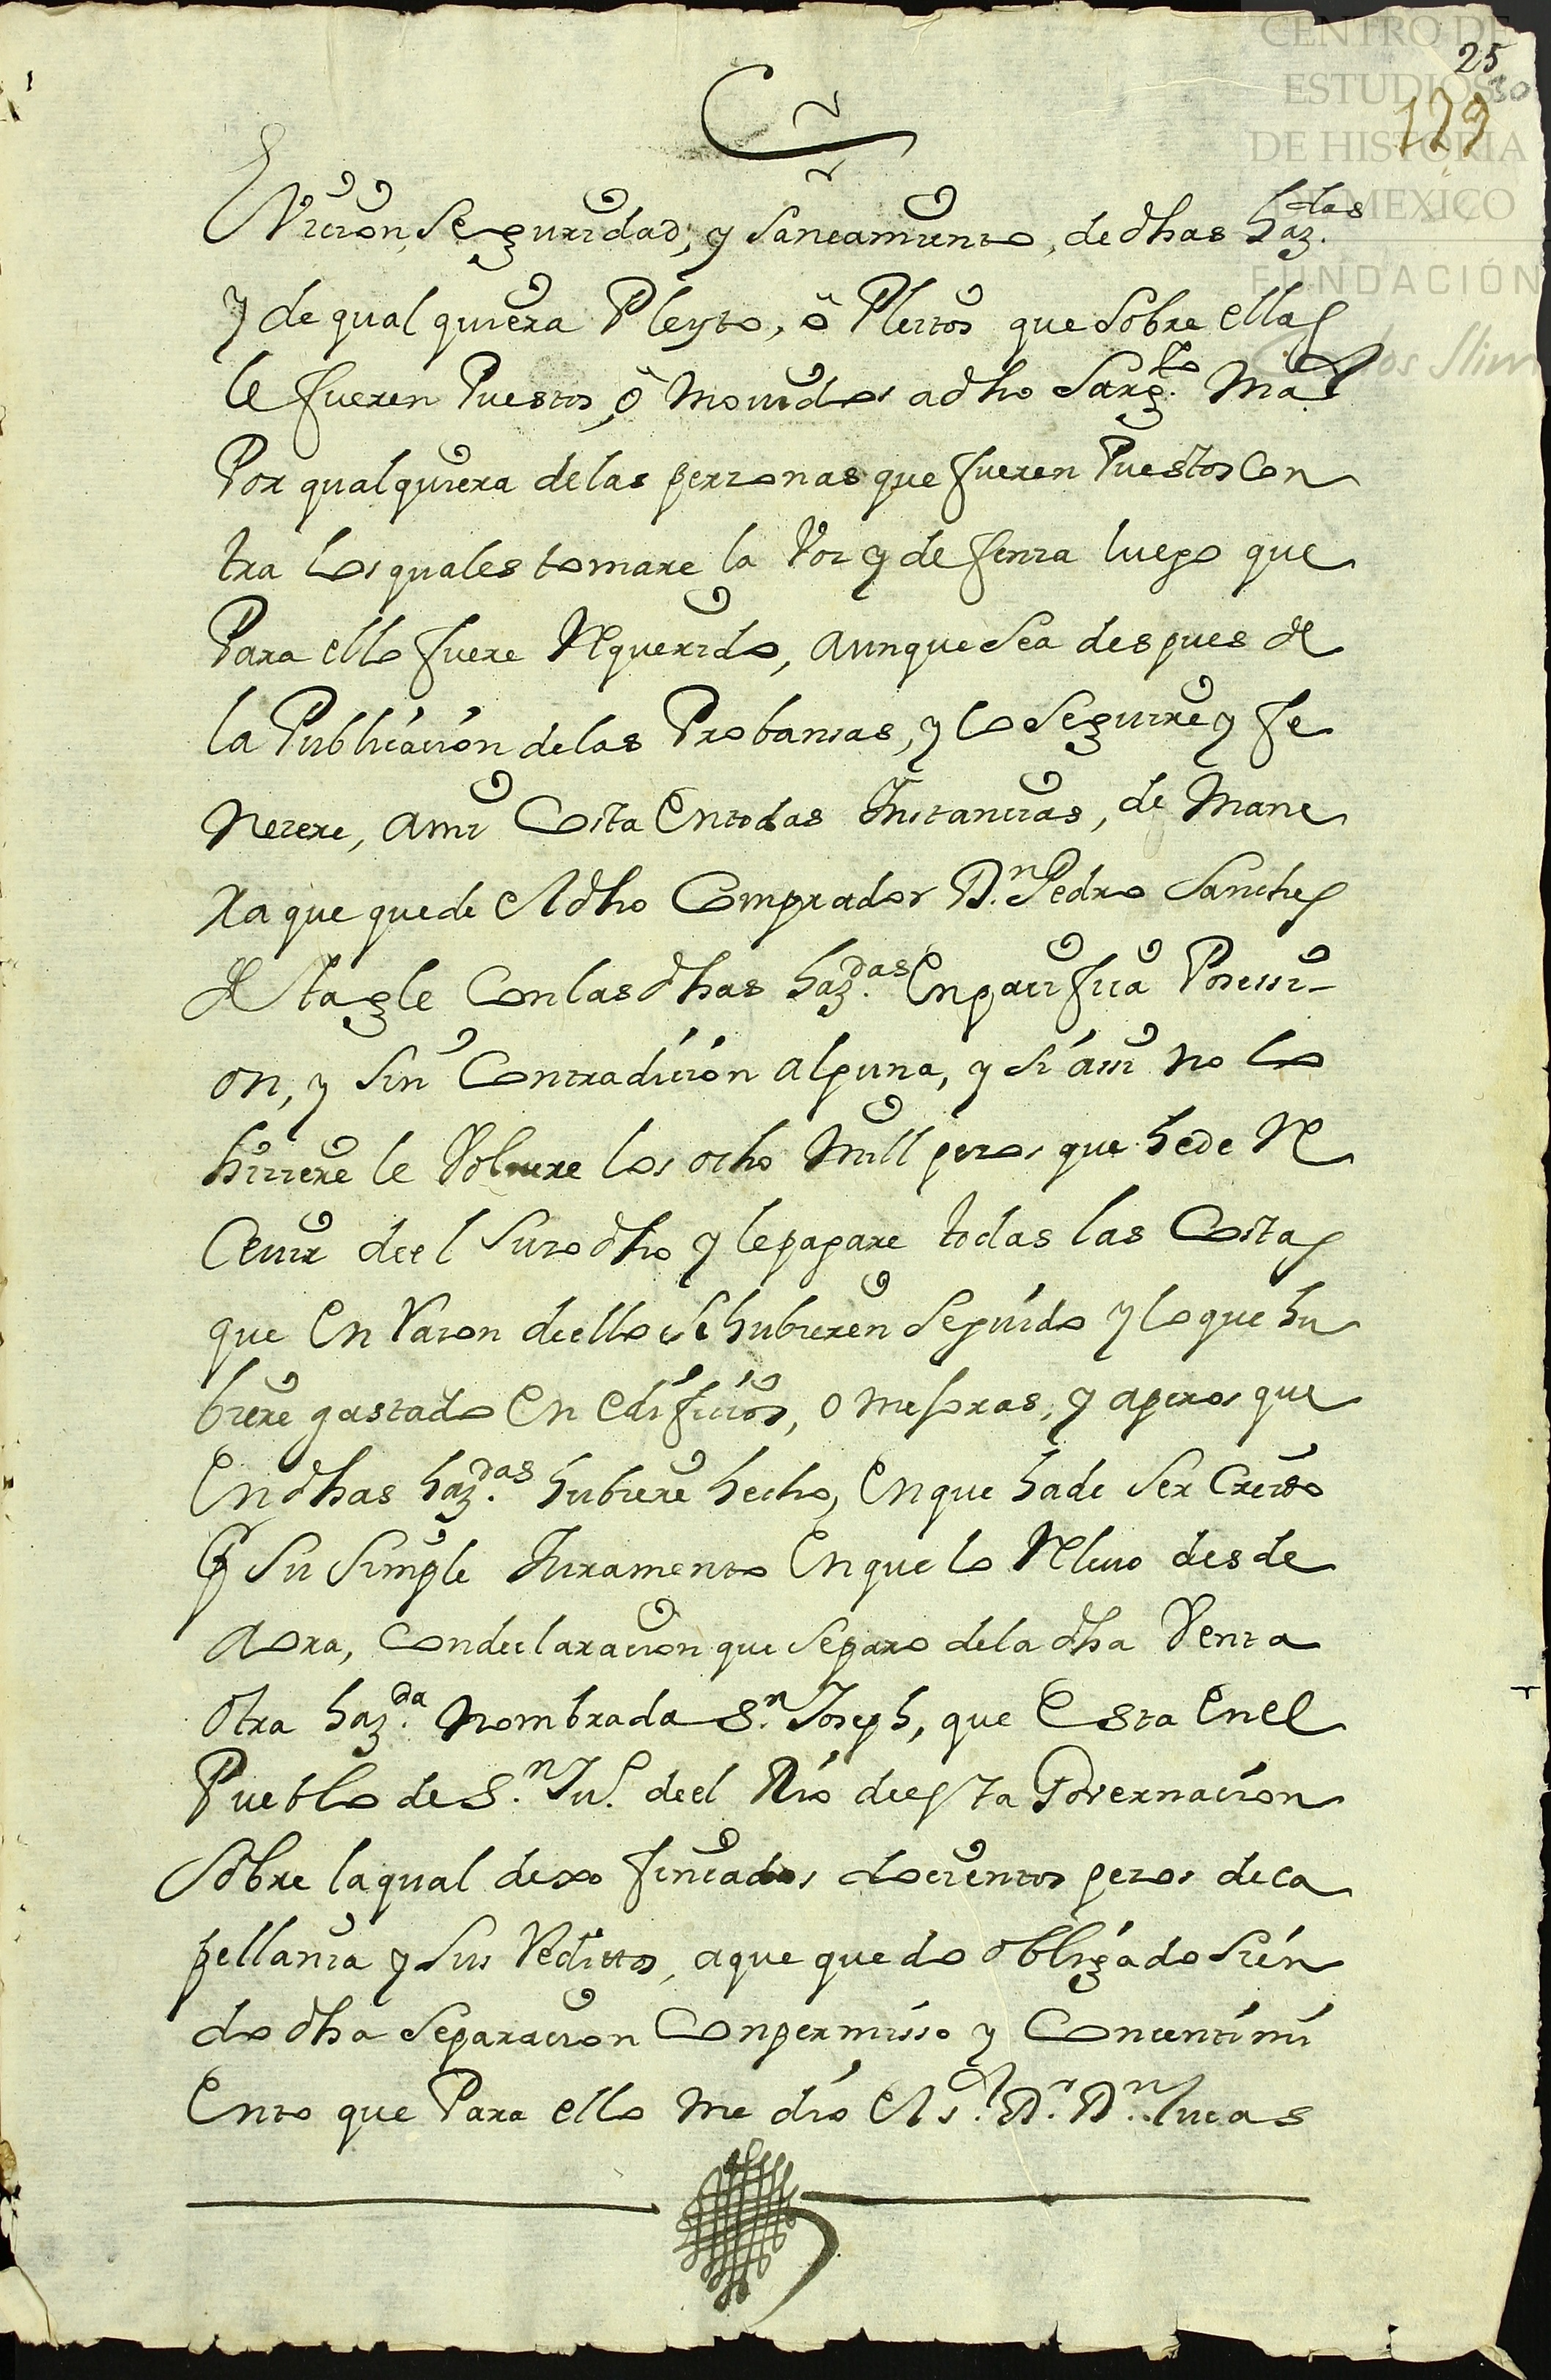 CENTRO DE
ESTUDIOS
DE HISTORIA
DE MEXICO
FUNDACIÓN
Carlos Slim
25
30
129
Eviccion, Seguridad, y Saneamiento, de dhas haz.das
y de qual quiera Pleyto, ô Pleitos que Sobre ellas
le fueren Puestos, ô Movidos adho Sarg.to Maor
Por qualquiera delas perzonas que fueren Puestos Con
tra Los quales tomare la Voz y defenza luego que
Para ello fuere Requerido, aunque Sea despues de
la Publicacion delas Probanzas, y lo Seguire y fe
Nezere, ami Costa En todas Instancias, de Mane
ra que quede el dho Comprador D.n Pedro Sanches
de tagle Con las dhas haz.das En pacifica Posessi-
on, y Sin Contradicion alguna, y Si assi no lo
hiziere le Volvere los ocho Mill pezos que hede Re
Cevir de el Suzodho y le pagare todas las Costas
que En Razon deello Se hubieren Seguido y lo que hu
biere gastado En edificios, o mejoras, y aperos que
En dhas haz.das hubiere hecho, En que hade Ser Creido
Por Su Simple Juramento En que lo Relevo desde
aora, Con declaracion que Separo dela dha Venta
otra haz.da Nombrada S.n Joseph, que Esta En el
Pueblo de S.n Ju.o de el Rio de esta Governacion
Sobre la qual dexo fincados docientos pezos de ca
pellania y Sus Reditos, aque quedo obligado Sien
do dha Separacion Con permisso y Concentimi
Ento que Para ello me dio el s.r D.r D.n Lucas